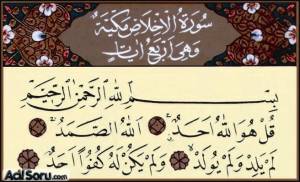 سُورَةُ الْاِخْلَاصِ مَكِّيَّةٌ
وَهِيَ اَرْبَعُ اٰيَاتٍ
بِسْمِ اللّٰهِ الرَّحْمٰنِ الرَّحٖيمِ
قُلْ هُوَ اللّٰهُ اَحَدٌ اَللّٰهُ الصَّمَدُ
لَمْ يَلِدْ وَلَمْ يُولَدْ وَلَمْ يَكُنْ لَهُ كُفُوًا اَحَدٌ
AcilSoru.com